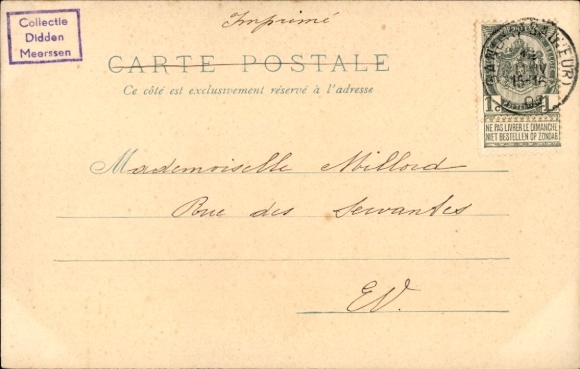 Collectie
Didden
Meerssen
Imprimé
CARTE POSTALE
Ce côté est exclusivement réservé à l'adresse
1 1
NE PAS LIVRER LE DIMANCHE
NIET BESTELLEN OP ZONDAG
Mademoiselle Millord
Rue des Servantes
EV.